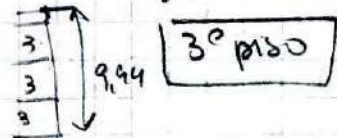 3
3
3
9,44
3º piso